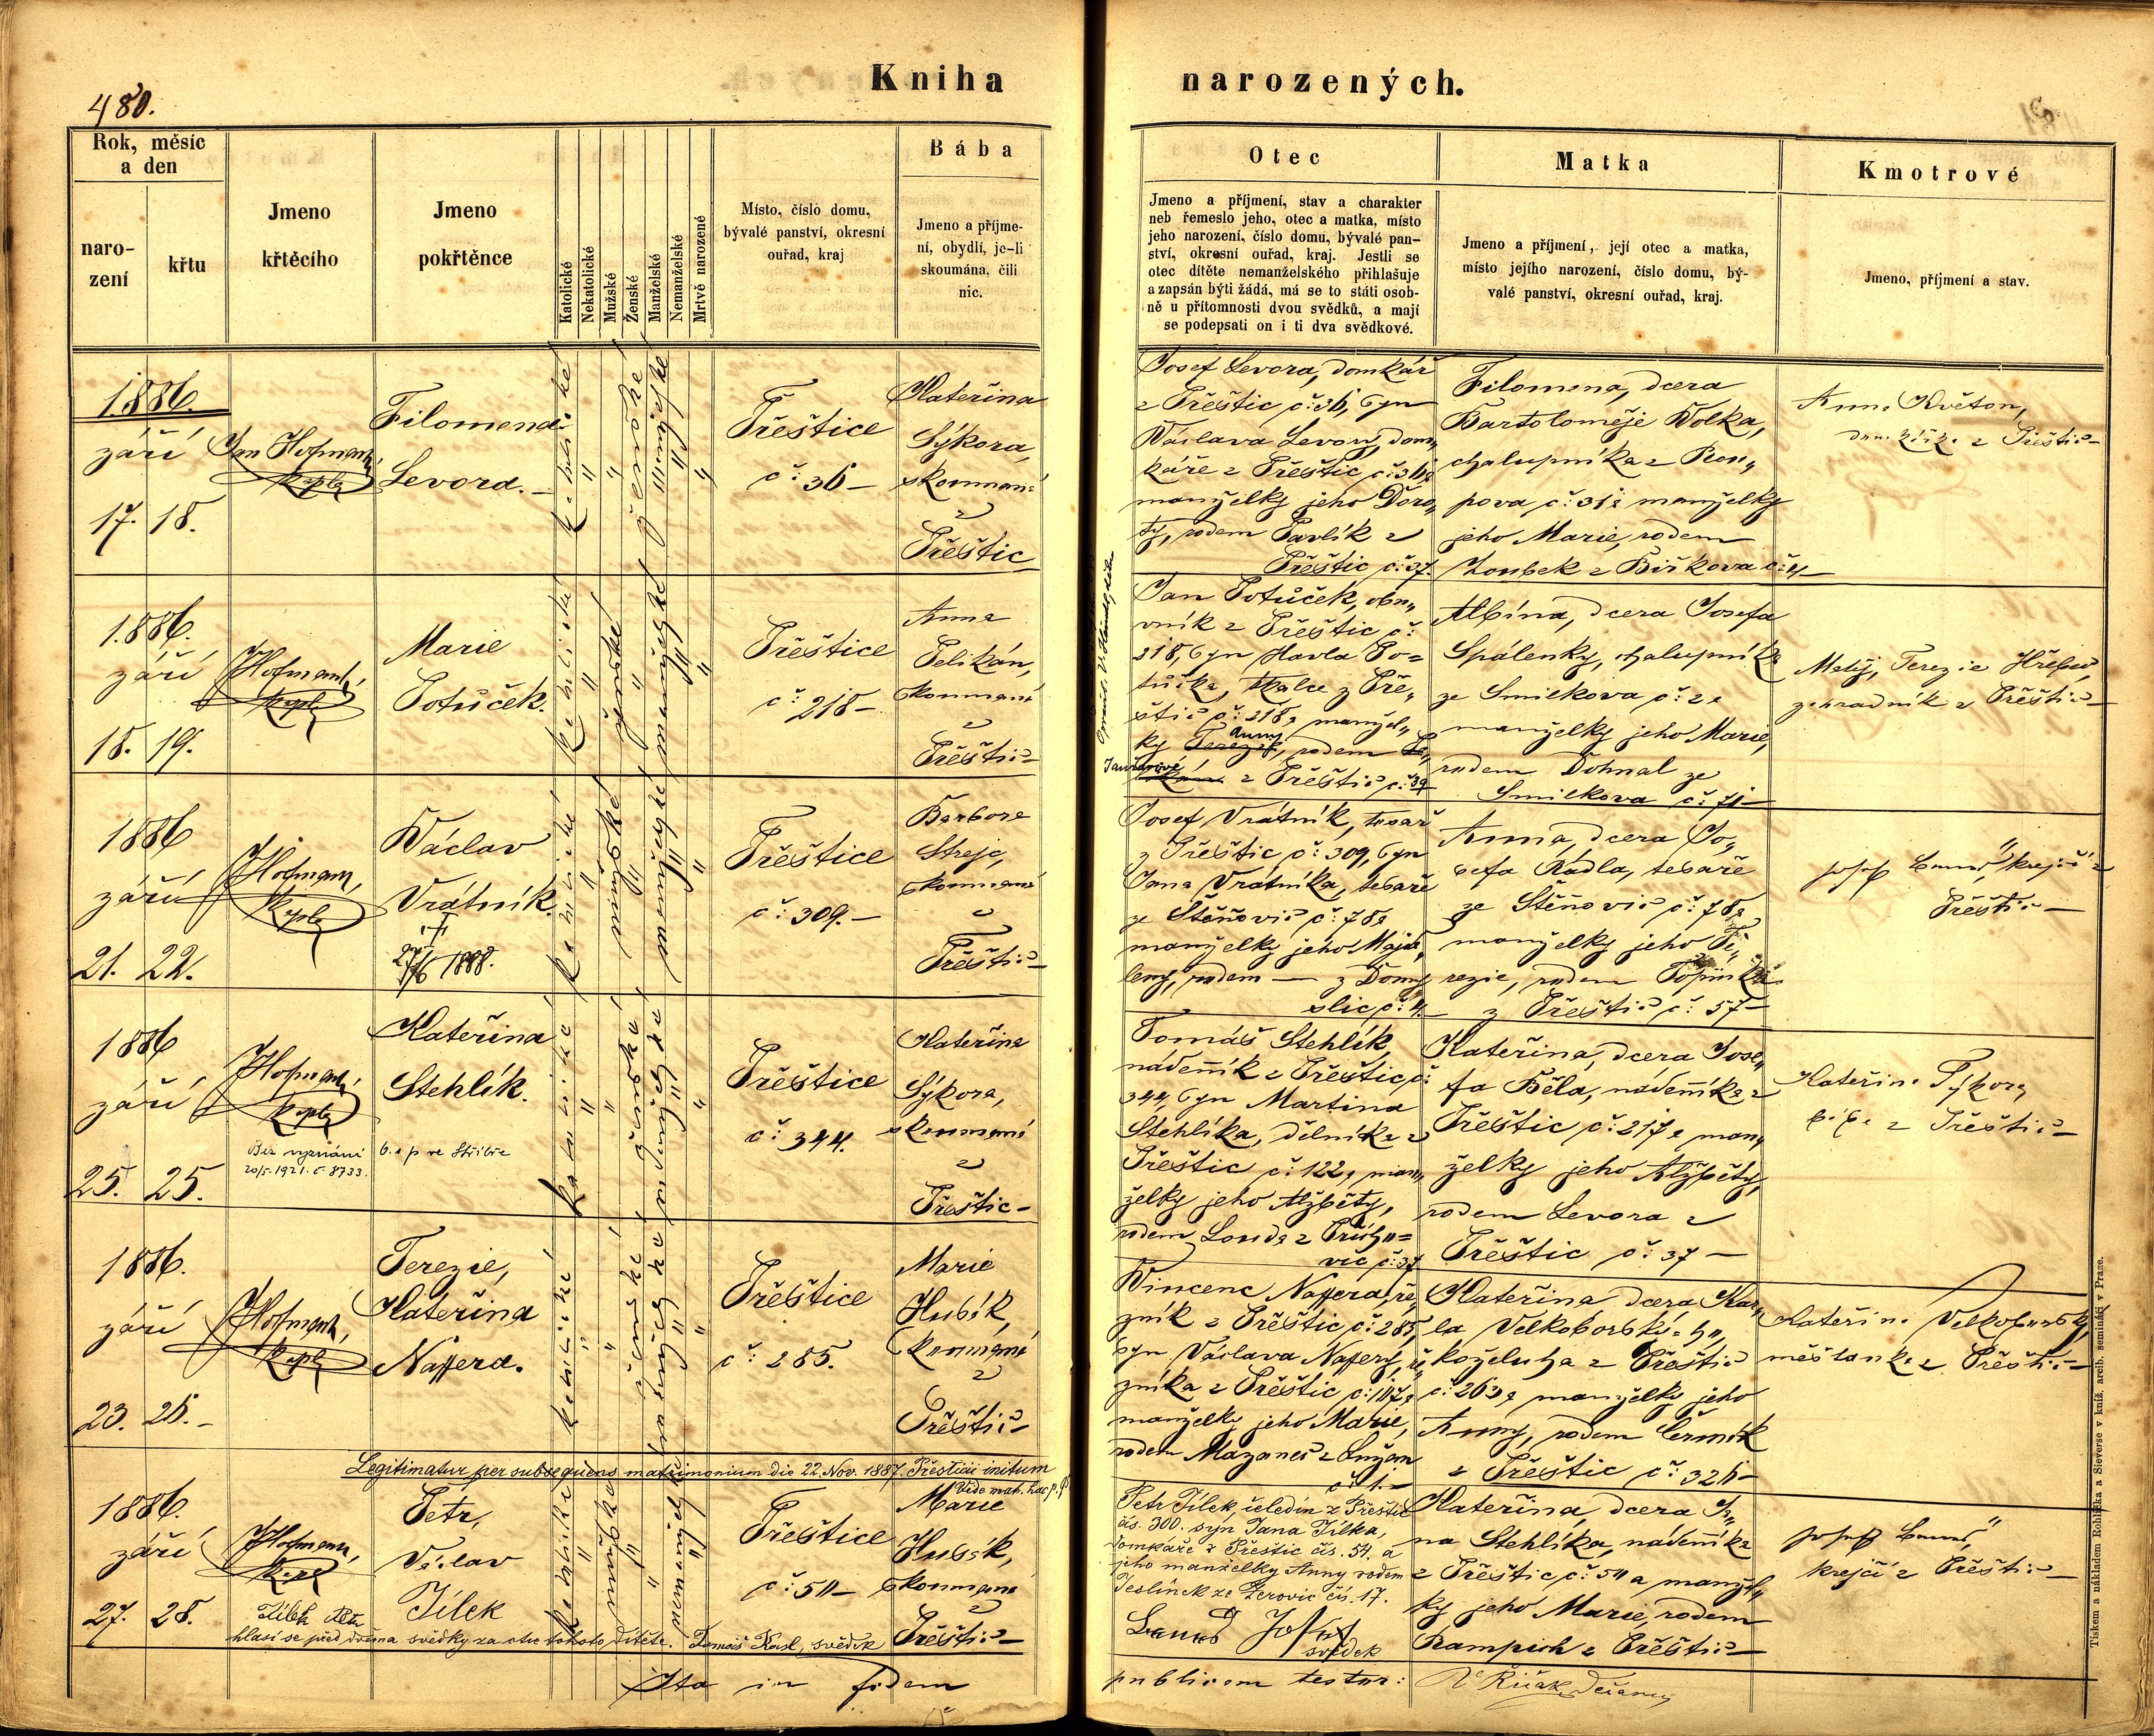 480.
Kniha narozených.
Rok, měsíc
a den
naro-
zení
křtu
Jmeno
křtěcího
Jmeno
pokřtěnce
Katolické
Nekatolické
Mužské
Ženské
Manželské
Nemanželské
Mrtvě narozené
Místo, číslo domu,
bývalé panství, okresní
ouřad, kraj
Bába
Jmeno a příjme-
ní, obydlí, je-li
skoumána, čili
nic.
Otec
Jmeno a příjmení, stav a charakter
neb řemeslo jeho, otec a matka, místo
jeho narození, číslo domu, bývalé pan-
ství, okresní ouřad, kraj. Jestli se
otec dítěte nemanželského přihlašuje
a zapsán býti žádá, má se to státi osob-
ně u přítomnosti dvou svědků, a mají
se podepsati on i ti dva svědkové.
Matka
Jmeno a příjmení, její otec a matka,
místo jejího narození, číslo domu, bý-
valé panství, okresní ouřad, kraj.
Kmotrové
Jmeno, příjmení a stav.
1886.
září
17. 18.
Jan Hofmann,
kapla
Filomena
Levora.
katolické
ženské
manželské
Přeštice
č: 36
Kateřina
Sýkora,
skoumaná
z
Přeštic
Josef Levora, domkář
z Přeštic č: 36, syn
Václava Levory, dom„
káře z Přeštic č: 36 a
manželky jeho Doro„
ty, rodem Pavlík z
Přeštic č: 37.
Filomena, dcera
Bartoloměje Volka,
chalupníka z Ron„
pova č: 31 a manželky
jeho Marie, rodem
Zoubek z Biřkova č: 4
Anna Květon,
z Přeštic
1886.
září
18. 19.
JHofmann,
kapla
Marie
Potůček.
katolické
ženské
manželské
Přeštice
č: 218
Anna
Pelikán,
skoumaná
z
Přeštic
Jan Potůček, obu„
vník z Přeštic č:
218, syn Havla Po=
tůčka, tkalce z Pře„
štic č: 218 a manžel„
ky Terezie, Anny rodem
z Přeštic č: 39
Albína, dcera Josefa
Spálenky, chalupníka
ze Smilkova č: 2 a
manželky jeho Marie,
rodem Dohnal ze
Smilkova č: 71
Matěj, Terezie
zahradník z Přeštic
1886
září
21. 22.
JHofmann,
kapla
Václav
Vrátník.
†
27/6 1888.
katolické
mužské
manželské
Přeštice
č: 309.
Barbora
Strejc,
skoumaná
z
Přeštic
Josef Vrátník, tesař
z Přeštic č: 309, syn
Jana Vrátníka, tesaře
ze Štěňovic č: 78 a
manželky jeho Majda„
leny, rodem — z Doma„
slic č: 4.
Anna, dcera Jo„
sefa Rádla, tesaře
ze Štěňovic č: 78 a
manželky jeho Te„
rezie, rodem Topinka
z Přeštic č: 57
Josef krejčí z
Přeštic
1886
září
25. 25.
JHofmann,
kapla
Bez vyznání
20/5. 1921. č. 8733.
Kateřina
Stehlík.
ve Stříbře
katolické
ženské
manželské
Přeštice
č: 344.
Kateřina
Sýkora,
skoumaná
z
Přeštic
Tomáš Stehlík,
nádenník z Přeštic č:
344, syn Martina
Stehlíka, dělníka z
Přeštic č: 122, man„
želky jeho Alžběty,
rodem Louda z Přícho=
vic č: 37
Kateřina, dcera Jose„
fa Běla, nádenníka z
Přeštic č: 217 a man„
želky jeho Alžběty,
rodem Levora z
Přeštic č: 37
Kateřina Sýkora,
bába z Přeštic
1886.
září
23. 26.
JHofmann,
kapla
Terezie,
Kateřina
Naffera.
katolické
ženské
manželské
Přeštice
č: 285.
Marie
Hubík,
skoumaná
z
Přeštic
Vincenc Naffera, ře„
zník z Přeštic č: 285,
syn Václava Naffery, ře„
zníka z Přeštic č: 117 a
manželky jeho Marie,
rodem Mazanec z Lužan
č: 1.
Kateřina dcera Kar„
la Velkoborského,
koželuha z Přeštic
č: 263 a manželky jeho
Anny, rodem Čermák
z Přeštic č: 326
Kateřina Velkoborský,
měšťanka z Přeštic
Legitimatur per subsequens matrimonium die 22. Nov. 1887. Přesticii initum
Vide matr. hac p.
1886.
září
27. 28.
JHofmann,
kapl
Petr,
Václav
Jílek
katolické
mužské
nemanželské
Přeštice
č: 50
Marie
Hubík,
skoumaná
z
Přeštic
Petr Jílek, čeledín z Přeštic
čís. 300. syn Jana Jílka,
domkáře z Přeštic čís. 54. a
jeho manželky Anny rodem
Teslínek ze Žerovic čís. 17.
Kateřina, dcera Ja„
na Stehlíka, nádenníka
z Přeštic č: 50 a manžel„
ky jeho Marie, rodem
Rampich z Přeštic
Josef
krejčí z Přeštic
Jílek Petr
hlásí se před dvěma svědky za otce tohoto dítěte. Tomáš Kasl, svědek
Josef
svědek
Ita in fidem publicam testor:
Tiskem a nákladem Rohlíčka a Sieverse v kníž. arcib. semináři v Praze.